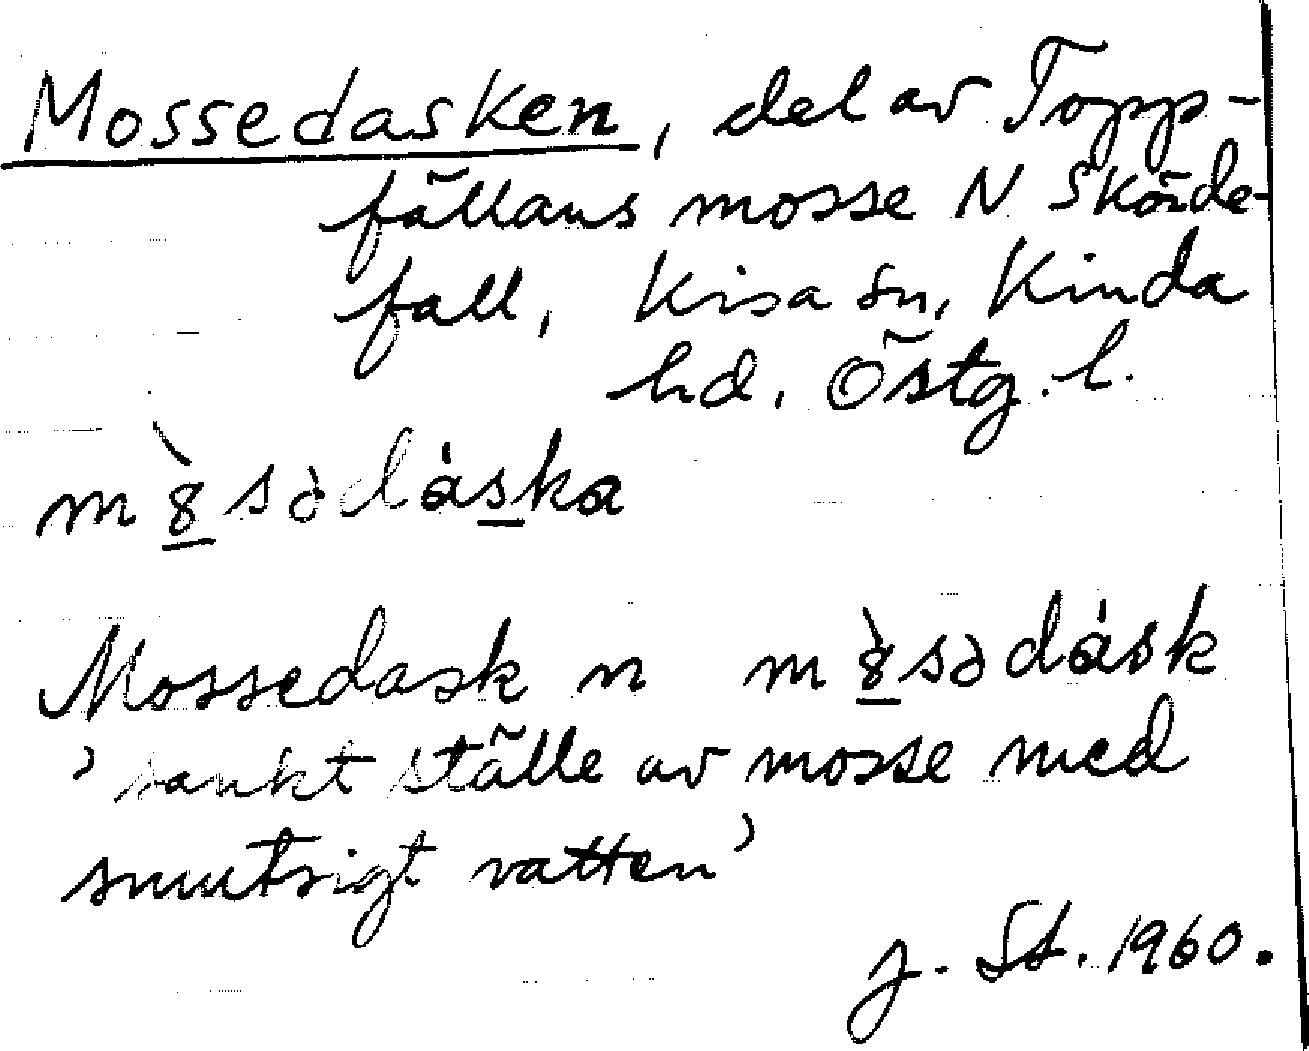 Mossedasken, del av Topp-
fällans mosse N Skörde-
fall, Kisa sn, Kinda
hd, Östg. l.
m8̀sədáska
Mossedask n m8̀sədásk
'sankt ställe av mosse med
smutsigt vatten'
J. St. 1960.